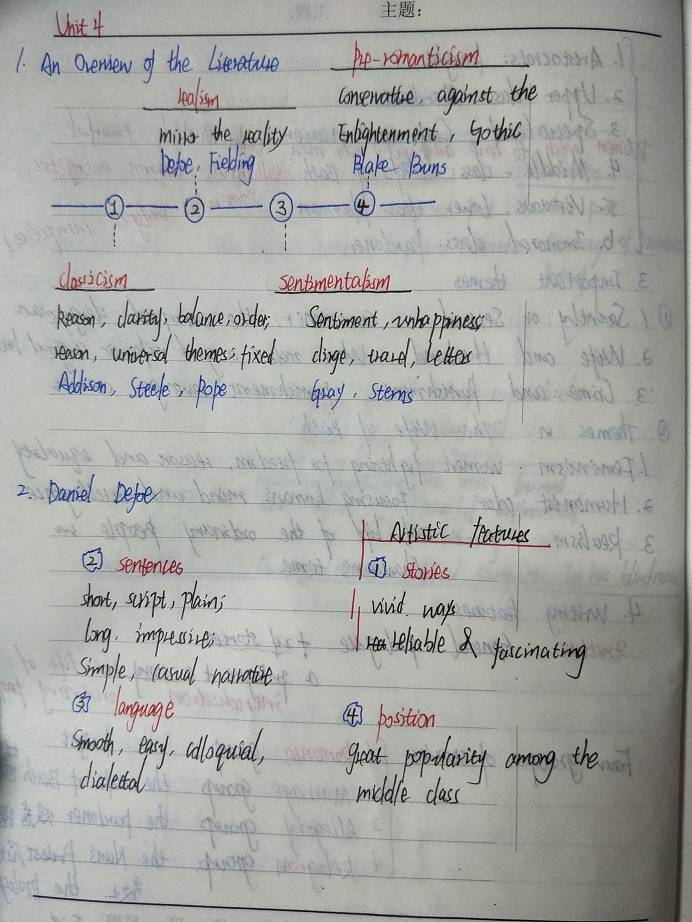 主题:
Unit 4
1. An Overview of the Literature
pre-romanticism
realism
conservative, against the
mirror the reality
Enlightenment, Gothic
Defoe, Fielding
Blake Buns
① ② ③ ④
classicism
sentimentalism
Reason, clarity, balance, order;
Sentiment, unhappiness
reason, universal themes; fixed
dirge, travel, letters
Addison, Steele, Pope
Gray, Sterns
2. Daniel Defoe
Artistic features
② sentences
① stories
short, script, plain;
vivid ways
long, impressive;
reliable & fascinating
Simple, casual narrative
③ language
④ position
Smooth, easy, colloquial,
great popularity among the
dialectal
middle class